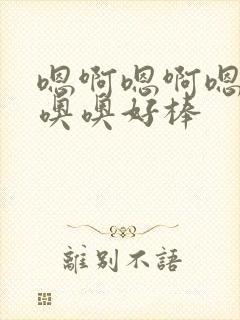 嗯啊嗯啊嗯
噢噢好棒
離別不語